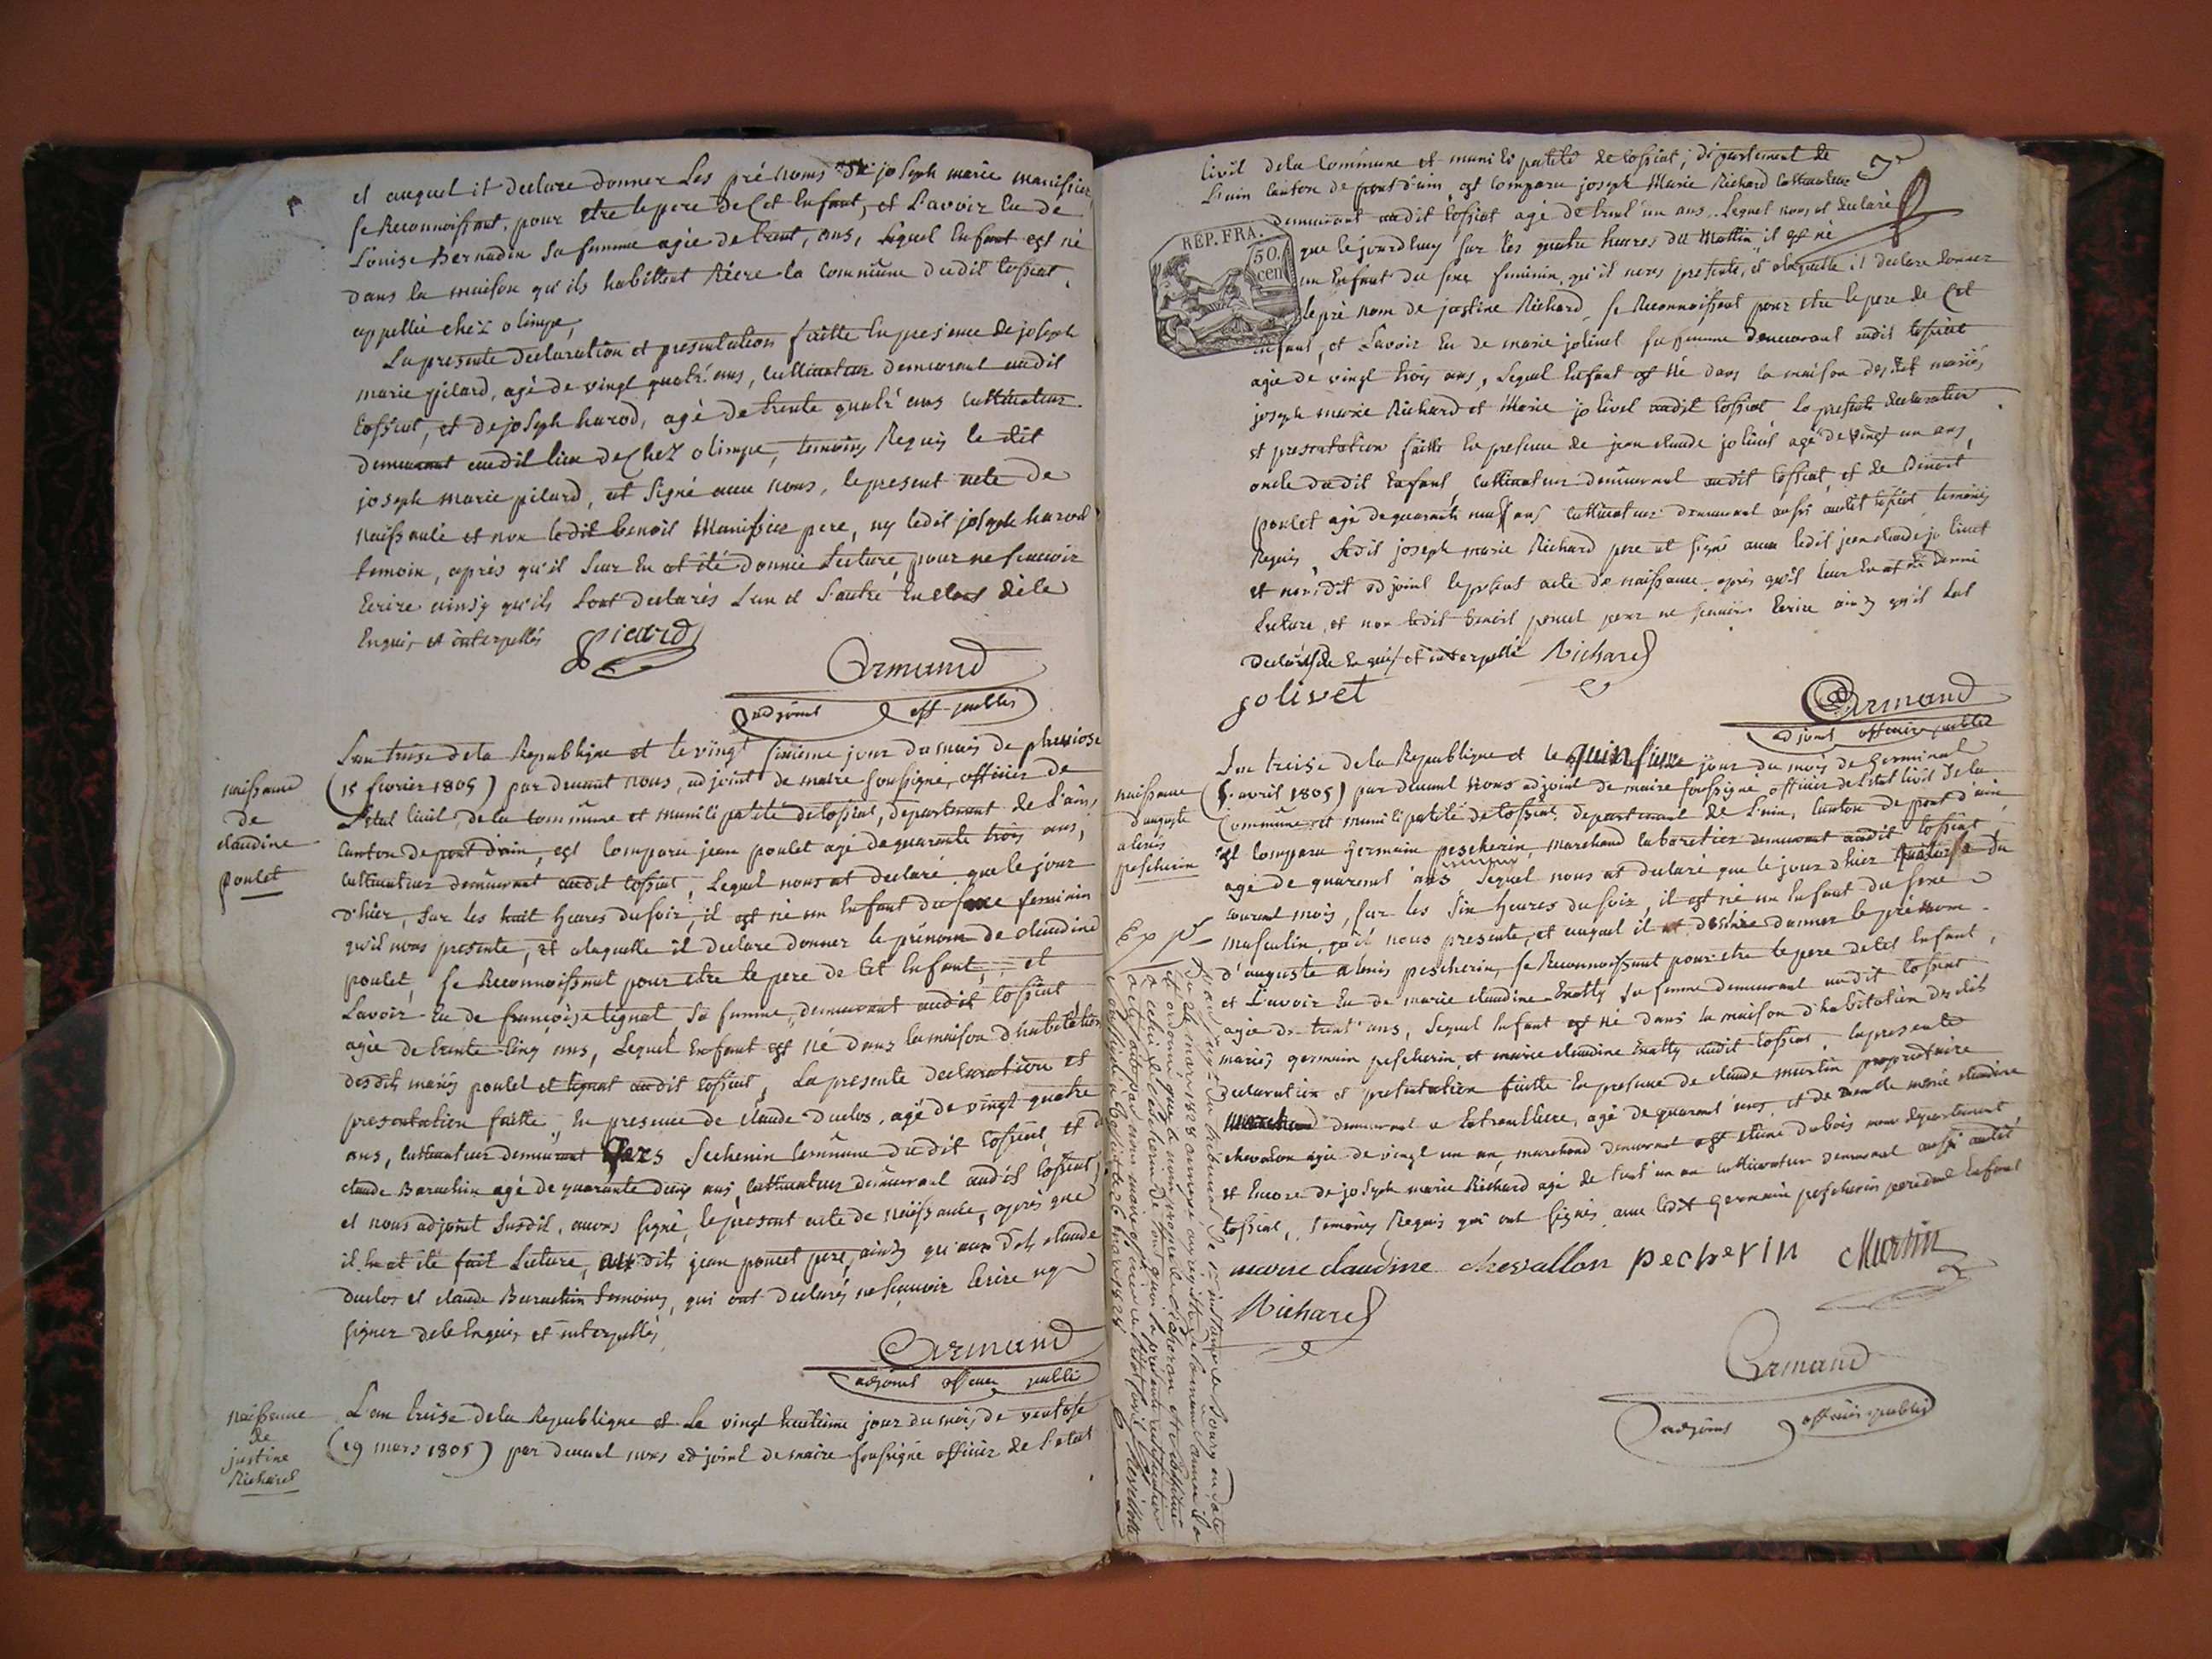 et auquel it declare donner Les pré noms de joseph marie manissier
se Reconnoissant, pour etre le pere de Cet Enfant, et L'avoir Eu de
Louise Bernadin sa femme agée de trent, ans, Lequel Enfant est né
dans la maison qu'ils habittent Riere la Commune dudit tossiat,
appellée chez olimpe,
La presente declaration et presentation faitte En presence de joseph
marie pilard, agé de vingt quatr'ans, Cultivateur demeurant audit
tossiat, et de joseph harod, agé de trente quatr'ans Cultivateur
demeurant audit lieu de Chez olimpe, temoins Requis le dit
joseph marie pilard, at Signé avec nous, le present acte de
naissance et non ledit benoit Manissier pere, ny ledit joseph harod
temoin, après qu'il Leur En at été donnée Lecture, pour ne scavoir
Ecrire ainsy qu'ils Lont declarés L'un et L'autre de ce
Enquis et interpellés picard
Ormand
adjoint off. public
naissance
de
claudine
poulet
L'an treise de la Republique et le vingt sixieme jour du mois de pluviose
(15 fevrier 1805) par devant nous, adjoint de maire soussigné, officier de
L'etat Civil, de la commune et municipalité de tossiat, departement de L'ain,
Canton de pont d'ain, est Comparu jean poulet agé de quarante trois ans,
Cultivateur demeurant audit tossiat, Lequel nous at declaré que le jour
d'hier, sur les huit heures du soir, il est né un Enfant du sexe feminin
qu'il nous presente, et a laquelle il declare donner le prénom de claudine
poulet, se Reconnoissant pour etre le pere de Cet Enfant, et
Lavoir Eu de françoise tignat sa femme, demeurant audit tossiat
agée de trente Cinq ans, Lequel Enfant est né dans la maison d'habitation
desdits mariés poulet et tignat audit tossiat, La presente declaration et
presentation faitte, En presence de claude duclos, agé de vingt quatre
ans, Cultivateur demeurant Sechenin Commune dudit tossiat, et de
claude Baruchin agé de quarante deux ans, Cultivateur demeurant audit tossiat,
et nous adjoint susdit, avons signé, le present acte de naissance, après que
il En at été fait Lecture, audit jean poncet pere, ainsy qu'aux dits claude
duclos et claude Baruchin temoins, qui ont declarés ne scavoir Ecrire ny
signer de ce Enquis et interpellés
Ormand
adjoint officier public
naissance
de
justine
Richard
L'an treise de la Republique et Le vingt huitieme jour du mois de ventose
(19 mars 1805) par devant nous adjoint de maire soussigné officier de L'etat
Civil de la Commune et municipalité de tossiat, departement de
L'ain Canton de pont d'ain, est Comparu joseph Marie Richard Cultivateur
demeurant audit tossiat agé de trent'un ans, Lequel nous at declaré
REP. FRA.
50.
cen
que le jourdhuy sur les quatre heures du Mattin il est né
un Enfant du sexe feminin qu'il nous presente, et alaquelle il declare donner
le pré nom de justine Richard, se Reconnoissant pour etre le pere de Cet
enfant, et Lavoir Eu de marie jolivet sa femme demeurant audit tossiat
agée de vingt trois ans, Lequel Enfant est Né dans la maison desdit mariés
joseph marie Richard et Marie jolivet audit tossiat La presente declaration
et presentation faitte En presence de jean claude jolivet agé de vingt un ans,
oncle dudit Enfant, Cultivateur demeurant audit tossiat, et de Benoit
poulet agé de quarante neuf ans Cultivateur demeurant aussi audit tossiat temoins
Requis, Ledit joseph marie Richard pere at signé avec ledit jean claude jolivet
et nous dit adjoint le present acte de naissance, après qu'il leur En at été donné
Lecture, et non ledit benoit poncet pour ne scavoir Ecrire ainsy qu'il Lat
declaré de Enquis et interpellé Richard
jolivet
Ormand
adjoint officier public
naissance
d'auguste
alexis
pescherin
L'an treise de la Republique et le quinsieme jour du mois de Germinal
(5. avril 1805) par devant Nous adjoint de maire soussigné, officier de L'etat Civil de la
Commune et municipalité de tossiat, departement de L'ain, Canton de pont d'ain,
Est Comparu Germain pescherin, marchand Cabaretier demeurant audit tossiat
agé de quarent ans Lequel nous at declaré que le jour d'hier quatorse du
courent mois, sur les Six heures du soir, il est né un Enfant du sexe
masculin qu'il nous presente, et auquel il at desiré donner le prénom
d'auguste alexis pescherin, se Reconnoissant pour etre le pere de Cet Enfant,
et L'avoir Eu de marie claudine sa femme demeurant audit tossiat
agée de trent'ans, Lequel Enfant est Né dans la maison d'habitation desdits
mariés germain pescherin et marie claudine audit tossiat. la presente
declaration et presentation faitte En presence de claude martin propriétaire
demeurant a agé de quarent ans, et de marie claudine
chevalon agée de vingt un an, marchand demeurant dubois meme departement,
et Encore de joseph marie Richard agé de trent'un an Cultivateur demeurant aussi audit
tossiat, temoins Requis qui ont signés avec Ledit Germain pescherin pere dudit Enfant
marie claudine chevallon pecherin Martin
Richard
Ormand
adjoint officier public